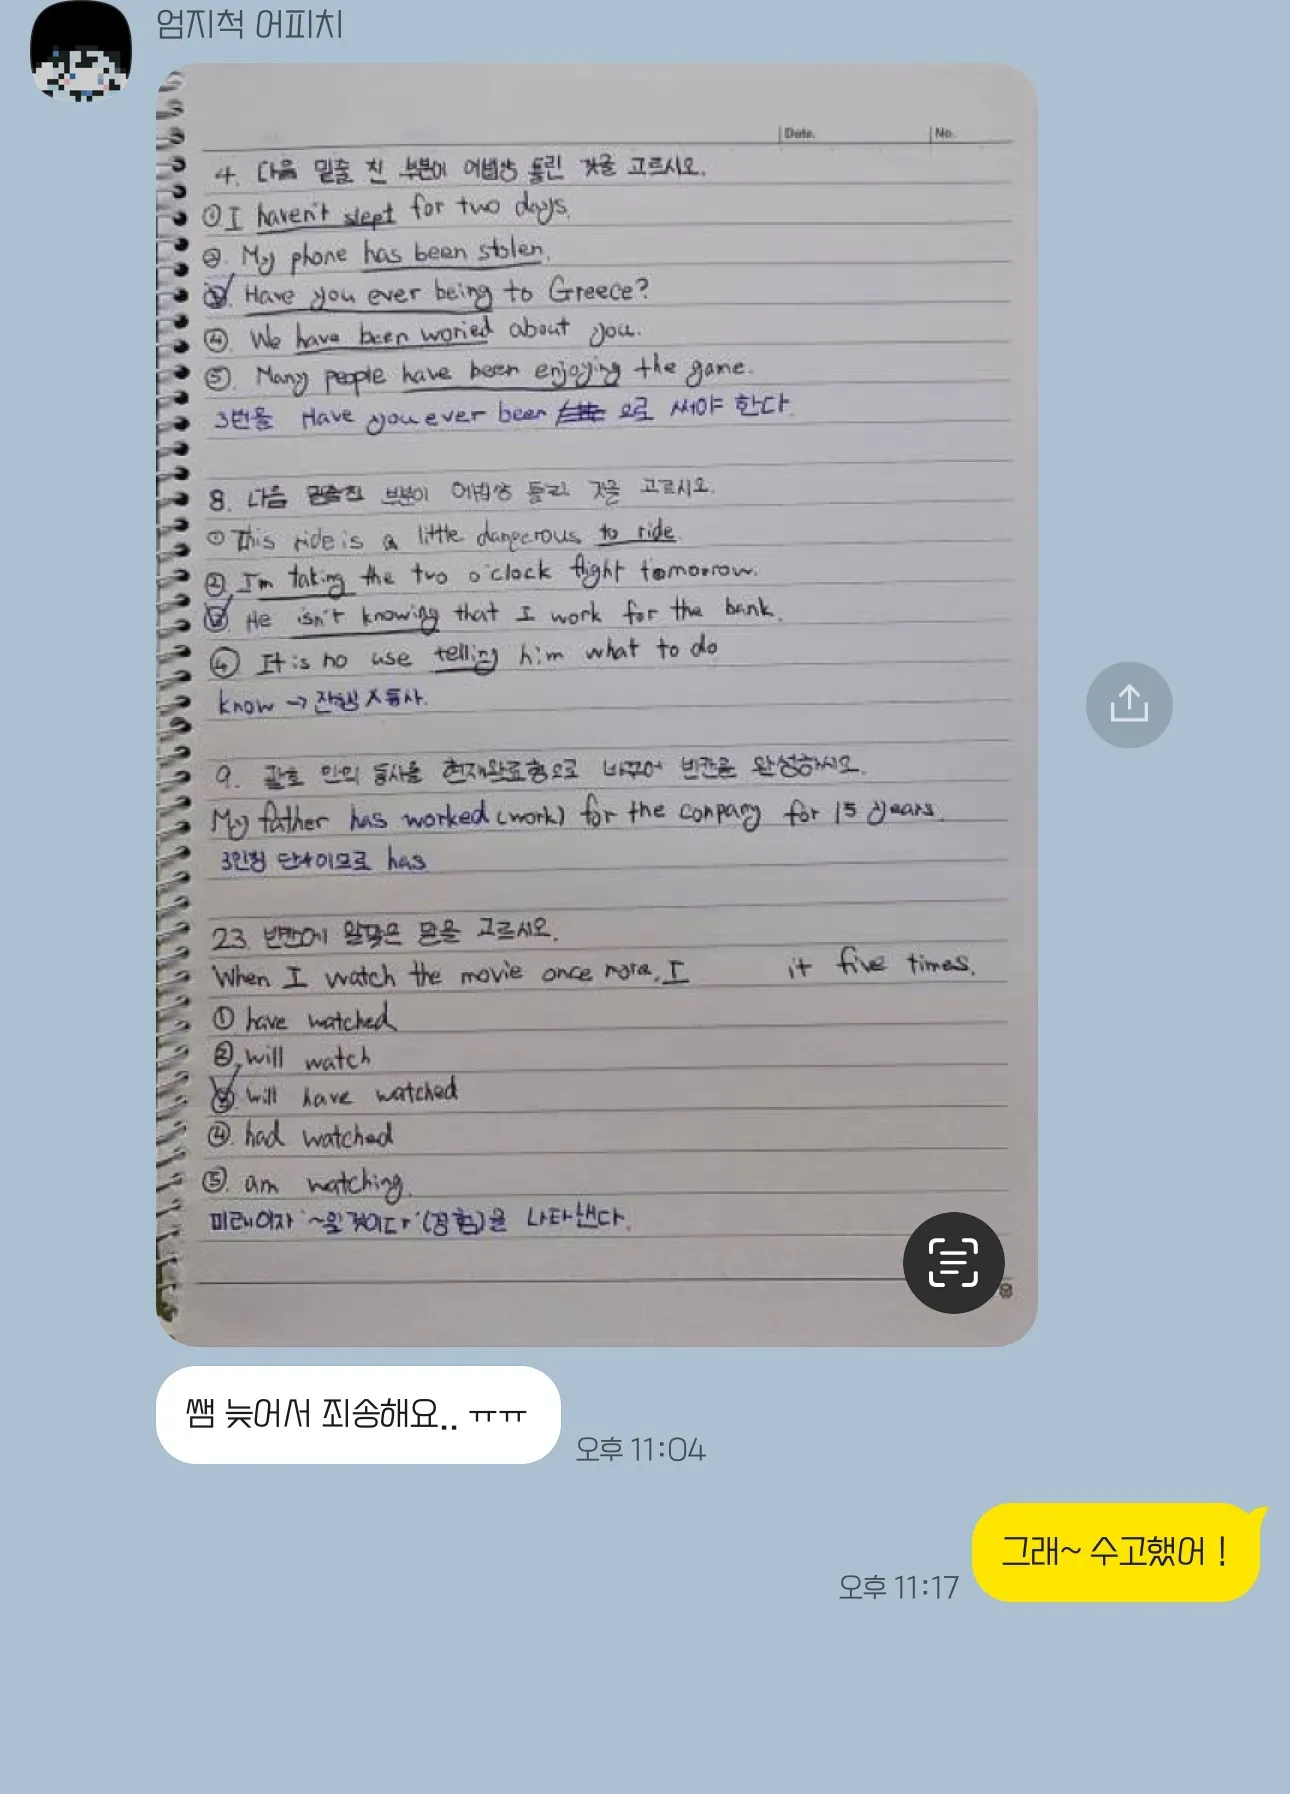 엄지척 어피치
Date.
No.
4. 다음 밑줄 친 부분이 어법상 틀린 것을 고르시오.
① I haven't slept for two days.
②. My phone has been stolen.
③. Have you ever being to Greece?
④. We have been woried about you.
⑤. Many people have been enjoying the game.
3번을 Have you ever been 으로 써야 한다.
8. 다음 밑줄친 부분이 어법상 틀린 것을 고르시오.
① This ride is a little dangerous to ride.
② I'm taking the two o'clock flight tomorrow.
③ He isn't knowing that I work for the bank.
④ It is no use telling him what to do
know → 진행 X 동사.
9. 괄호 안의 동사를 현재완료형으로 바꾸어 빈칸을 완성하시오.
My father has worked (work) for the conpany for 15 years.
3인칭 단수이므로 has
23. 빈칸에 알맞은 말을 고르시오.
When I watch the movie once more, I it five times.
① have watched
②. will watch
③. will have watched
④. had watched
⑤. am watching.
미래이자 '~일 것이다' (경험)을 나타낸다.
쌤 늦어서 죄송해요.. ㅠㅠ
오후 11:04
그래~ 수고했어 !
오후 11:17